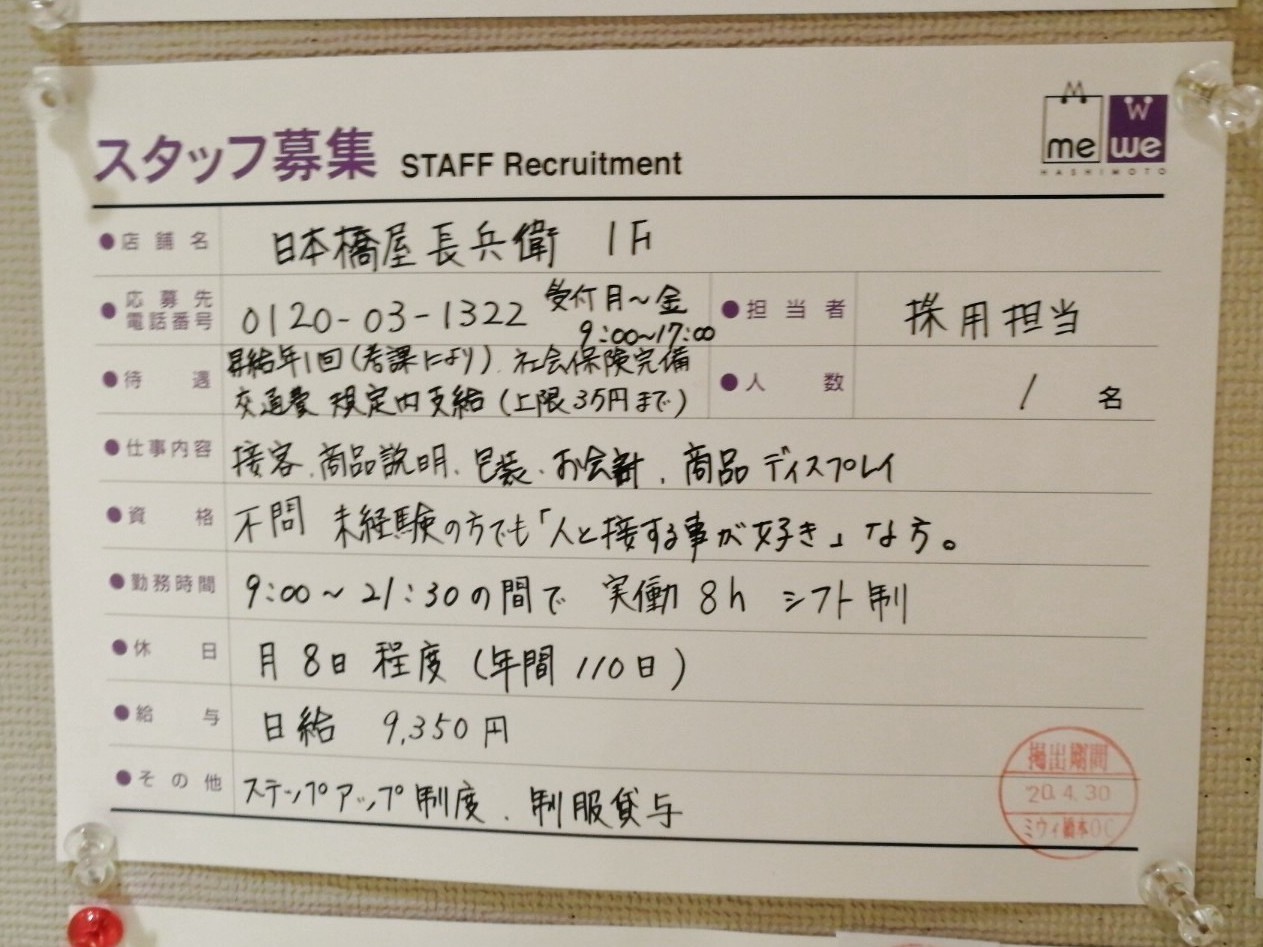 スタッフ募集 STAFF Recruitment
M W
me we
HASHIMOTO
●店舗名 日本橋屋長兵衛 1F
●応募先電話番号 0120-03-1322 受付月~金 9:00~17:00
●担当者 採用担当
●待遇 昇給年1回(考課により)、社会保険完備
交通費 規定内支給(上限3万円まで)
●人数 1名
●仕事内容 接客、商品説明、包装、お会計、商品ディスプレイ
●資格 不問 未経験の方でも「人と接する事が好き」な方。
●勤務時間 9:00~21:30の間で 実働8h シフト制
●休日 月8日程度(年間110日)
●給与 日給 9,350円
●その他 ステップアップ制度、制服貸与
掲出期間
20.4.30
ミウィ橋本OC